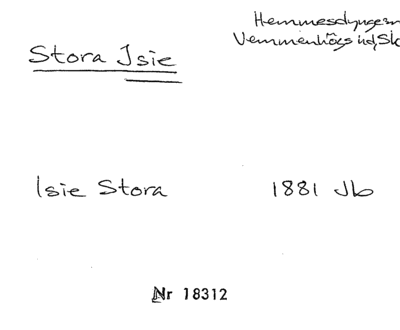 Hemmesdynge sn
Vemmenhögs hd, Sk
Stora Isie
Isie Stora 1881 Jb
Nr 18312